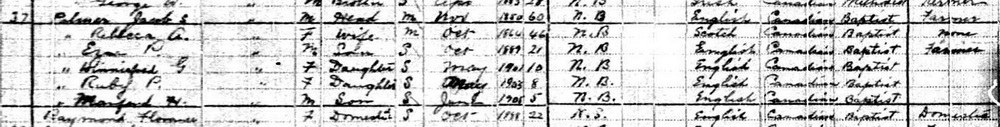 George M Brother S 1883 28 N.B Irish Canadian Methodist Farmer
37 Palmer Jacob S. " M Head M Nov 1850 60 N.B English Canadian Baptist Farmer
" Rebecca A. " F Wife M Oct 1864 46 N.B Scotch Canadian Baptist none
" Ezra P. " M Son S Oct 1889 21 N.B English Canadian Baptist Farmer
" Winniefred G " F Daughter S May 1901 10 N.B English Canadian Baptist
" Ruby P. " F Daughter S May 1903 8 N.B English Canadian Baptist
" H. " M Son S June 1905 5 N.B. English Canadian Baptist
Raymond Florence " F Domestic S Oct 22 N.S. English Canadian Baptist Domestic